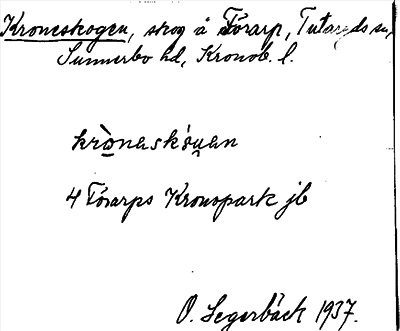 Kroneskogen, skog å Tórarp, Tutareds sn,
Sunnerbo hd, Kronob. l.
krònaskóuan
4 Tórarps Kronopark jb
O. Segerbäck 1937.